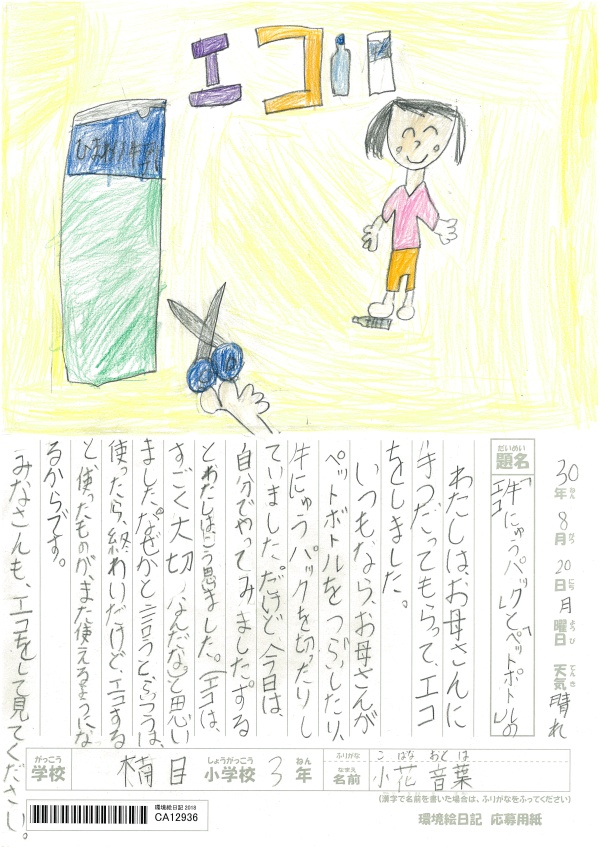 エコ
ひまわり牛乳
30年8月20日月曜日 天気晴れ
ねん がつ にち ようび てんき
だいめい
題名
「牛にゅうパック」と「ペットボトル」の
エコ
わたしは、お母さんに
手つだってもらって、エコ
をしました。
いつもなら、お母さんが
ペットボトルをつぶしたり、
牛にゅうパックを切ったりし
ていました。だけど、今日は、
自分でやってみました。する
とわたしはこう思ました。(エコは、
すごく大切なんだな。)と思い
ました。なぜかと言うと、ふつうは、
使ったら、終わいだけど、エコする
と、使ったものが、また使えるようにな
るからです。
みなさんも、エコをして見てください。
がっこう
学校
楠目
しょうがっこう
小学校
3
ねん
年
ふりがな
こ はな おと は
なまえ
名前
小花 音葉
(漢字で名前を書いた場合は、ふりがなをふってください)
環境絵日記2018
CA12936
環境絵日記 応募用紙